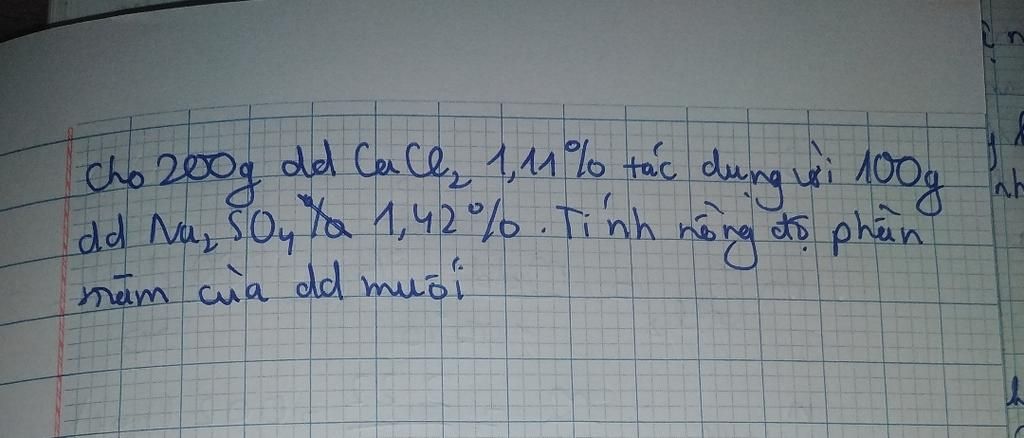 Cho 200g dd CaCl₂ 1,11% tác dụng với 100g
dd Na₂SO₄ 1,42%. Tính nồng độ phần
trăm của dd muối